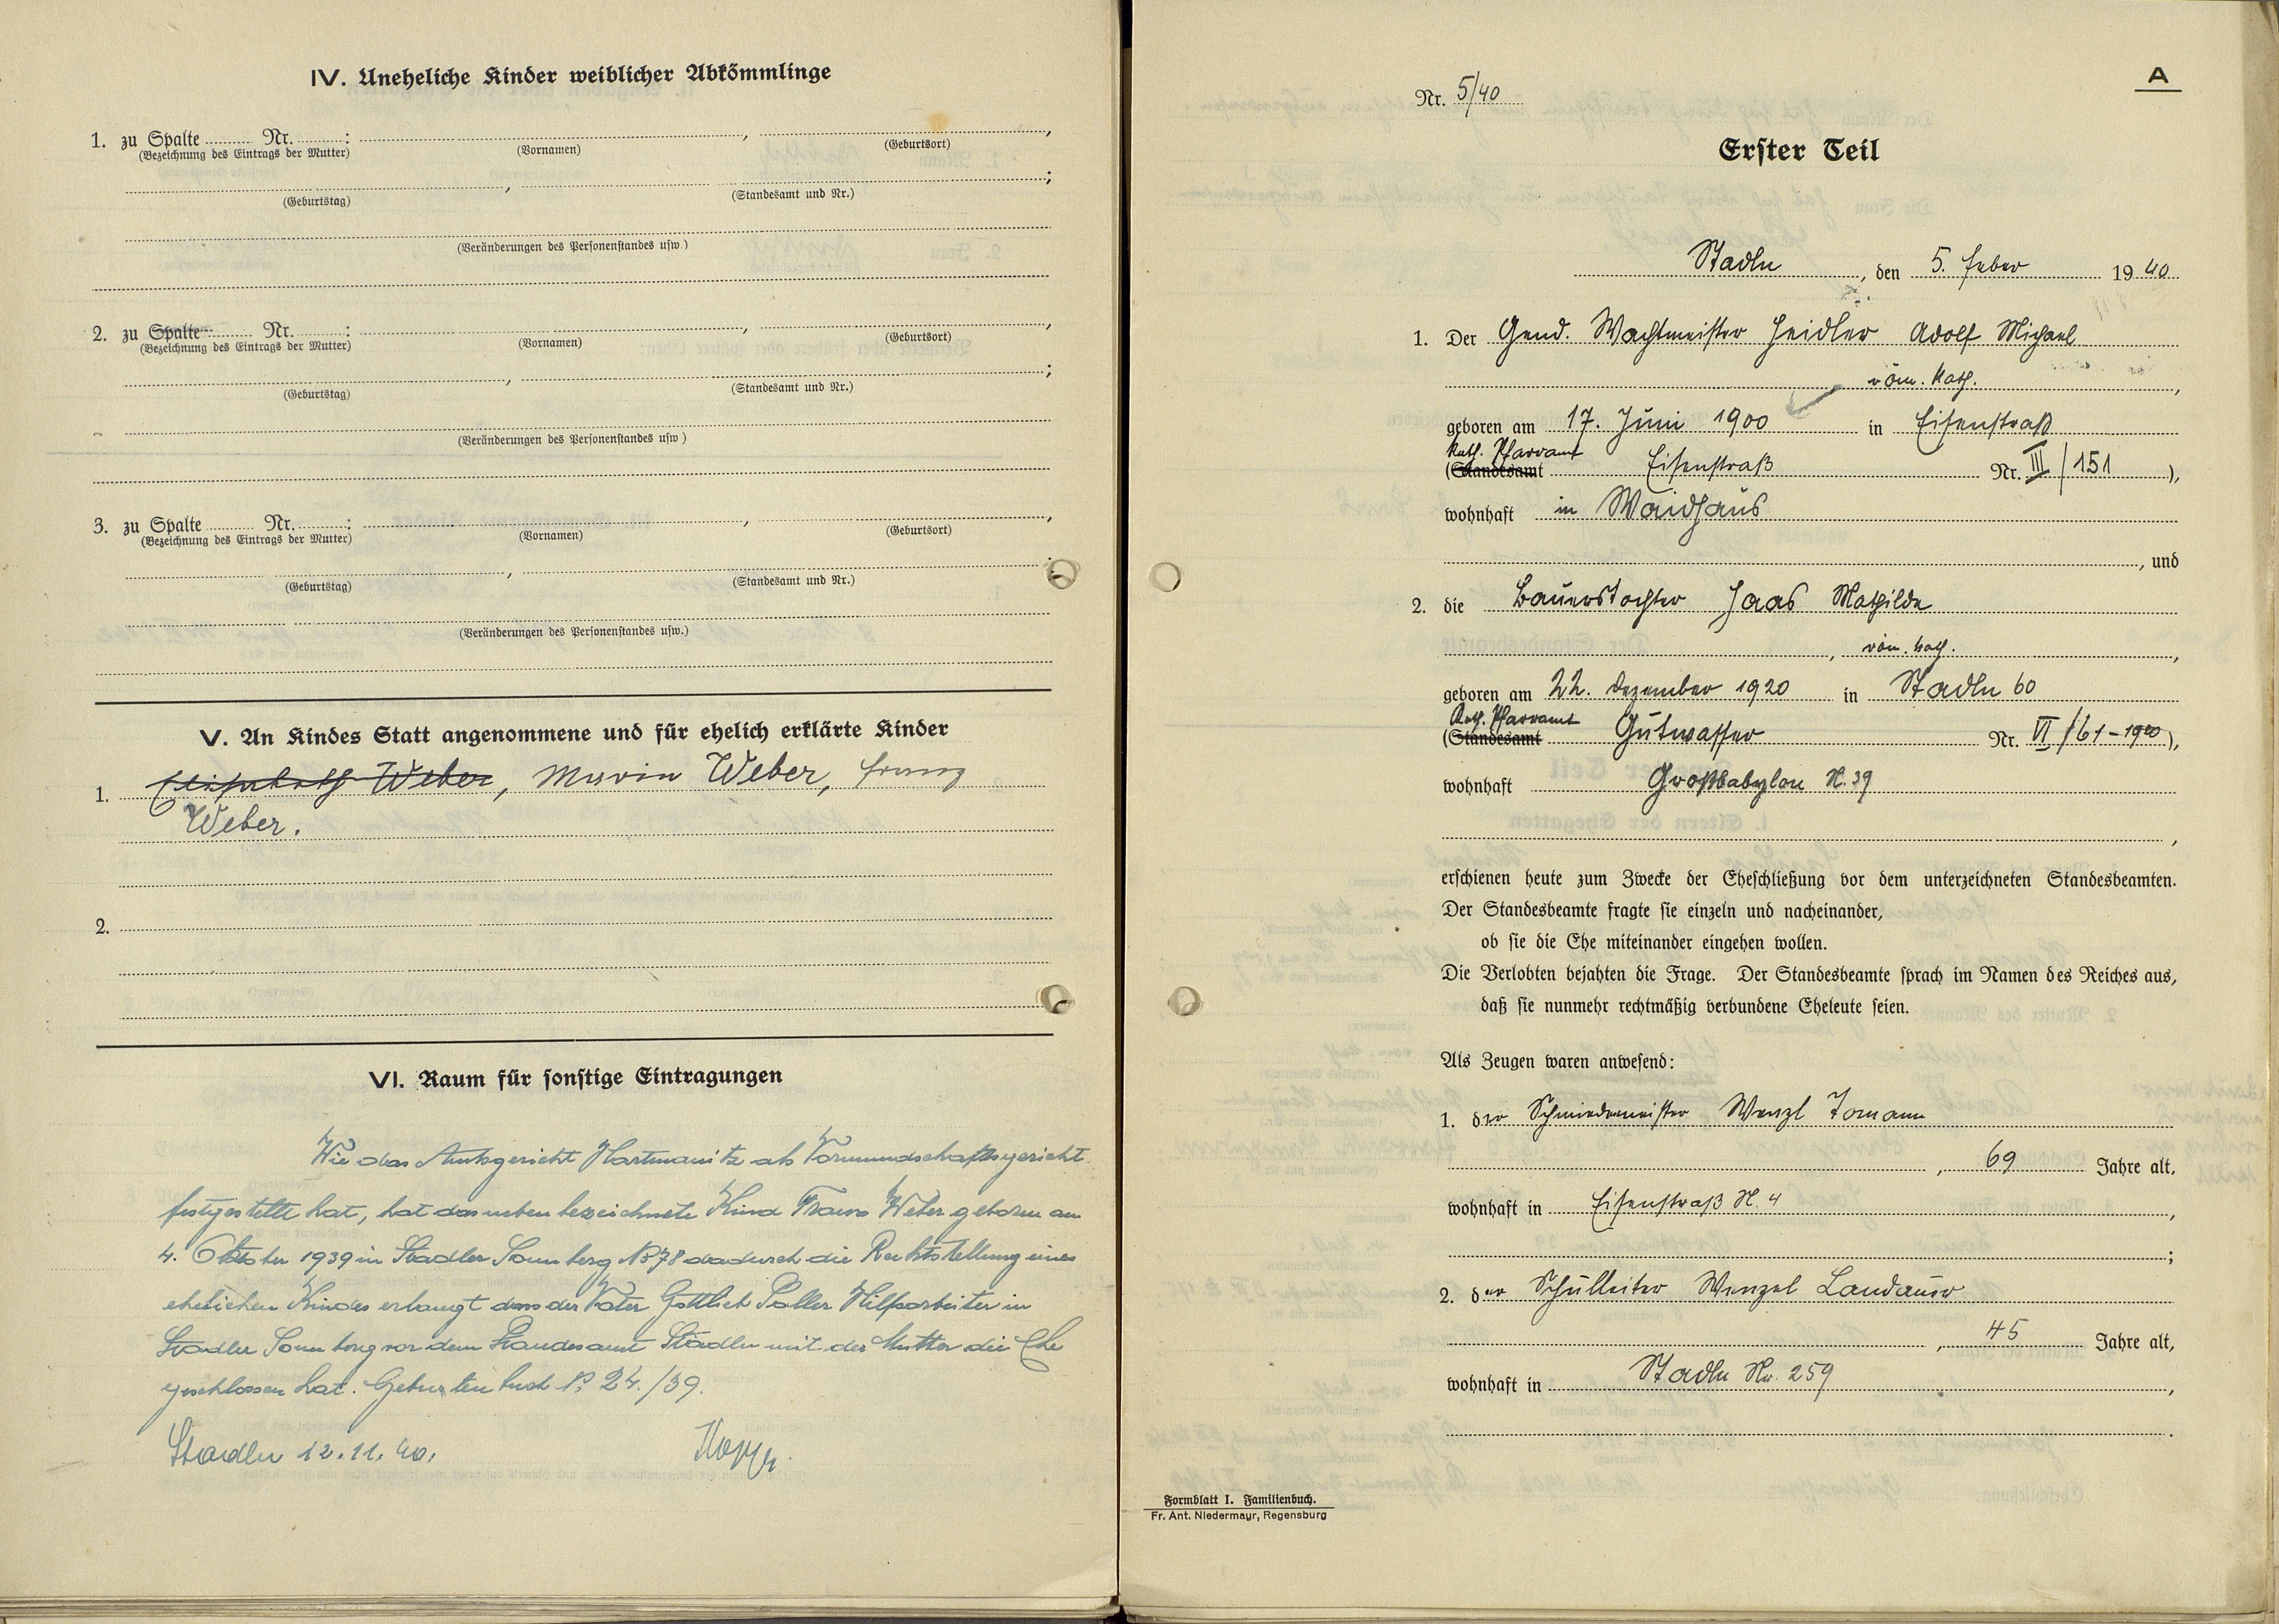 IV. Uneheliche Kinder weiblicher Abkömmlinge
1. zu Spalte ........ Nr. ........: ........, ........,
(Bezeichnung des Eintrags der Mutter) (Vornamen) (Geburtsort)
........, ........;
(Geburtstag) (Standesamt und Nr.)
(Veränderungen des Personenstandes usw.)
2. zu Spalte ........ Nr. ........: ........, ........,
(Bezeichnung des Eintrags der Mutter) (Vornamen) (Geburtsort)
........, ........;
(Geburtstag) (Standesamt und Nr.)
(Veränderungen des Personenstandes usw.)
3. zu Spalte ........ Nr. ........: ........, ........,
(Bezeichnung des Eintrags der Mutter) (Vornamen) (Geburtsort)
........, ........;
(Geburtstag) (Standesamt und Nr.)
(Veränderungen des Personenstandes usw.)
V. An Kindes Statt angenommene und für ehelich erklärte Kinder
1. Elisabeth Weber, Maria Weber, Franz
Weber.
2.
VI. Raum für sonstige Eintragungen
Wie das Amtsgericht Hartmanitz als Vormundschaftsgericht
festgestellt hat, hat das neben bezeichnete Kind Franz Weber geboren am
4. Oktober 1939 in Stadler Sonnberg No 78 dadurch die Rechtsstellung eines
ehelichen Kindes erlangt dass der Vater Gottlieb Paller Hilfsarbeiter in
Stadler Sonnberg vor dem Standesamt Stadln mit der Mutter die Ehe
geschlossen hat. Geburtenbuch No 24./39.
Stadln 12.11.40.
A
Nr. 5/40
Erster Teil
Stadln, den 5. Feber 1940
1. Der Gend. Wachtmeister Heidler Adolf Michael
röm. kath.,
geboren am 17. Juni 1900 in Eisenstraß
Kath. Pfarramt
(Standesamt Eisenstraß Nr. III/151),
wohnhaft in Waidhaus
, und
2. die Bauerstochter Haas Mathilde
, röm. kath.,
geboren am 22. Dezember 1920 in Stadln 60
Kath. Pfarramt
(Standesamt Gutwasser Nr. VI/61-1920),
wohnhaft Großbabylon N. 39
,
erschienen heute zum Zwecke der Eheschließung vor dem unterzeichneten Standesbeamten.
Der Standesbeamte fragte sie einzeln und nacheinander,
ob sie die Ehe miteinander eingehen wollen.
Die Verlobten bejahten die Frage. Der Standesbeamte sprach im Namen des Reiches aus,
daß sie nunmehr rechtmäßig verbundene Eheleute seien.
Als Zeugen waren anwesend:
1. der Schmiedemeister Wenzl Tomann
, 69 Jahre alt,
wohnhaft in Eisenstraß N. 4,
;
2. der Schulleiter Wenzel Landauer
, 45 Jahre alt,
wohnhaft in Stadln Nr. 259,
.
Formblatt I. Familienbuch.
Fr. Ant. Niedermayr, Regensburg